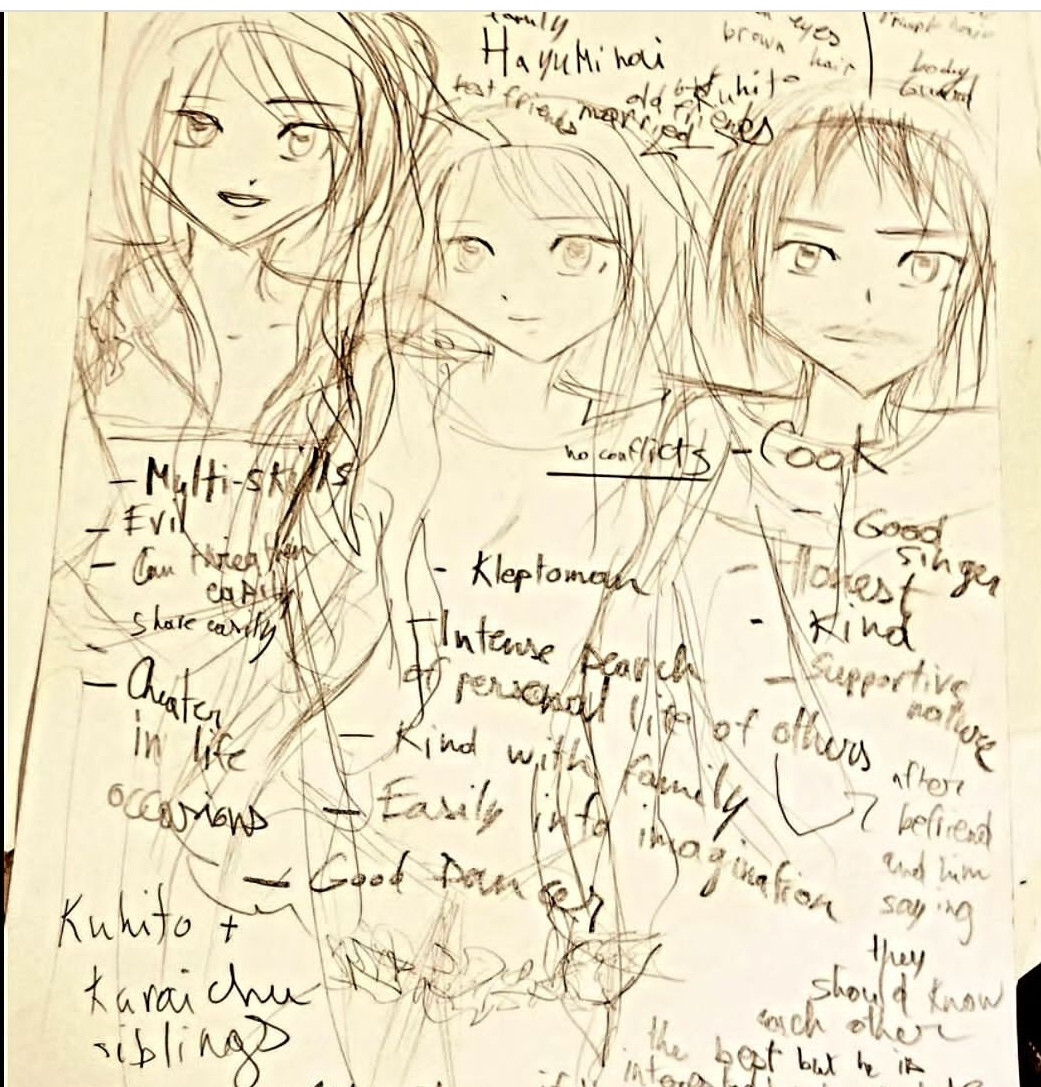 family
HayuMinai
best friends
married
old best friends
Kuhito
eyes
brown hair
body
Guard
no conflicts
- Multi-skills
- Evil
- Can threaten
easily
share easily
- Cheater
in life
occasions
Kuhito +
Karaichu
siblings
- Kleptoman
- Intense search
of personal life of others
- Kind with family
- Easily into imagination
- Good Dancer
- Cook
- Good
singer
- Honest
- Kind
- Supportive
nature
after
befriend
and him
saying
they
should know
each other
the best but he is